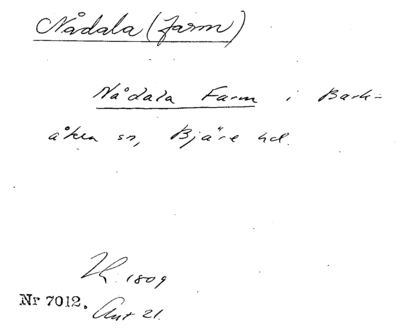 Nådala (farm)
Nådala Farm i Bark-
åkra sn, Bjäre hd.
1809
Nr 7012.
21.